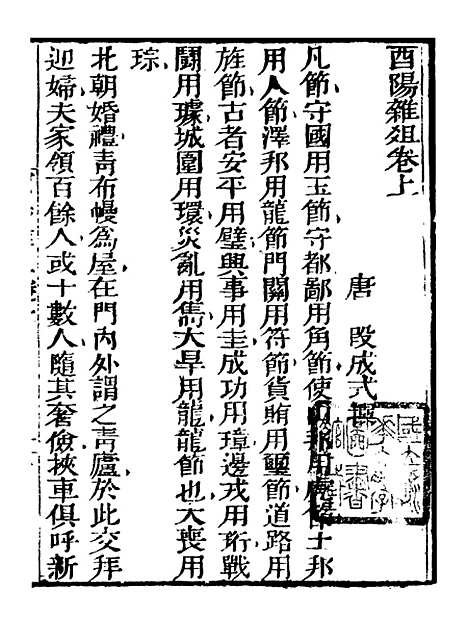 酉陽雜俎卷上
唐 段成式撰
凡節守國用玉節守都鄙用角節使山邦用虎節土邦
用人節澤邦用龍節門關用符節貨賄用璽節道路用
旌節古者安平用璧興事用圭成功用璋邊戎用珩戰
鬬用璩城圍用環災亂用雋大旱用龍龍節也大喪用
琮
北朝婚禮青布幔爲屋在門內外謂之青廬於此交拜
迎婦夫家領百餘人或十數人隨其奢儉挾車俱呼新